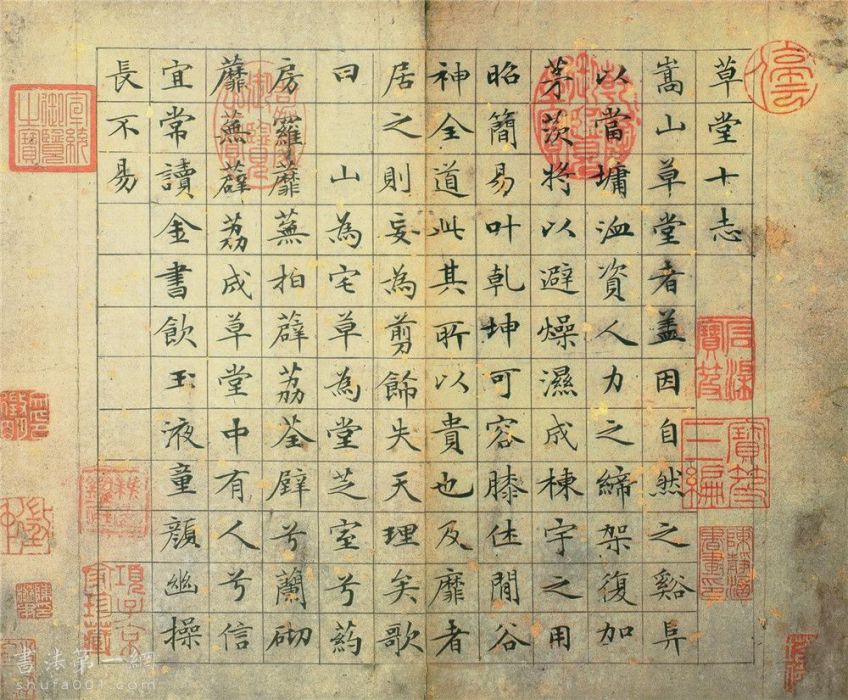 草堂十志
嵩山草堂者盖因自然之谿阜
以當墉洫資人力之締架復加
茅茨将以避燥濕成棟宇之用
昭簡易叶乾坤可容膝休閒谷
神全道此其所以貴也及靡者
居之則妄為剪飾失天理矣歌
曰 山為宅草為堂芝室兮葯
房羅蘼蕪拍薜荔荃壁兮蘭砌
蘼蕪薜荔成草堂中有人兮信
宜常讀金書飲玉液童顔幽操
長不易
石渠寶笈
寶笈三編
宣統御覽之寶
項子京家珍藏
書法第一網
shufa001.com